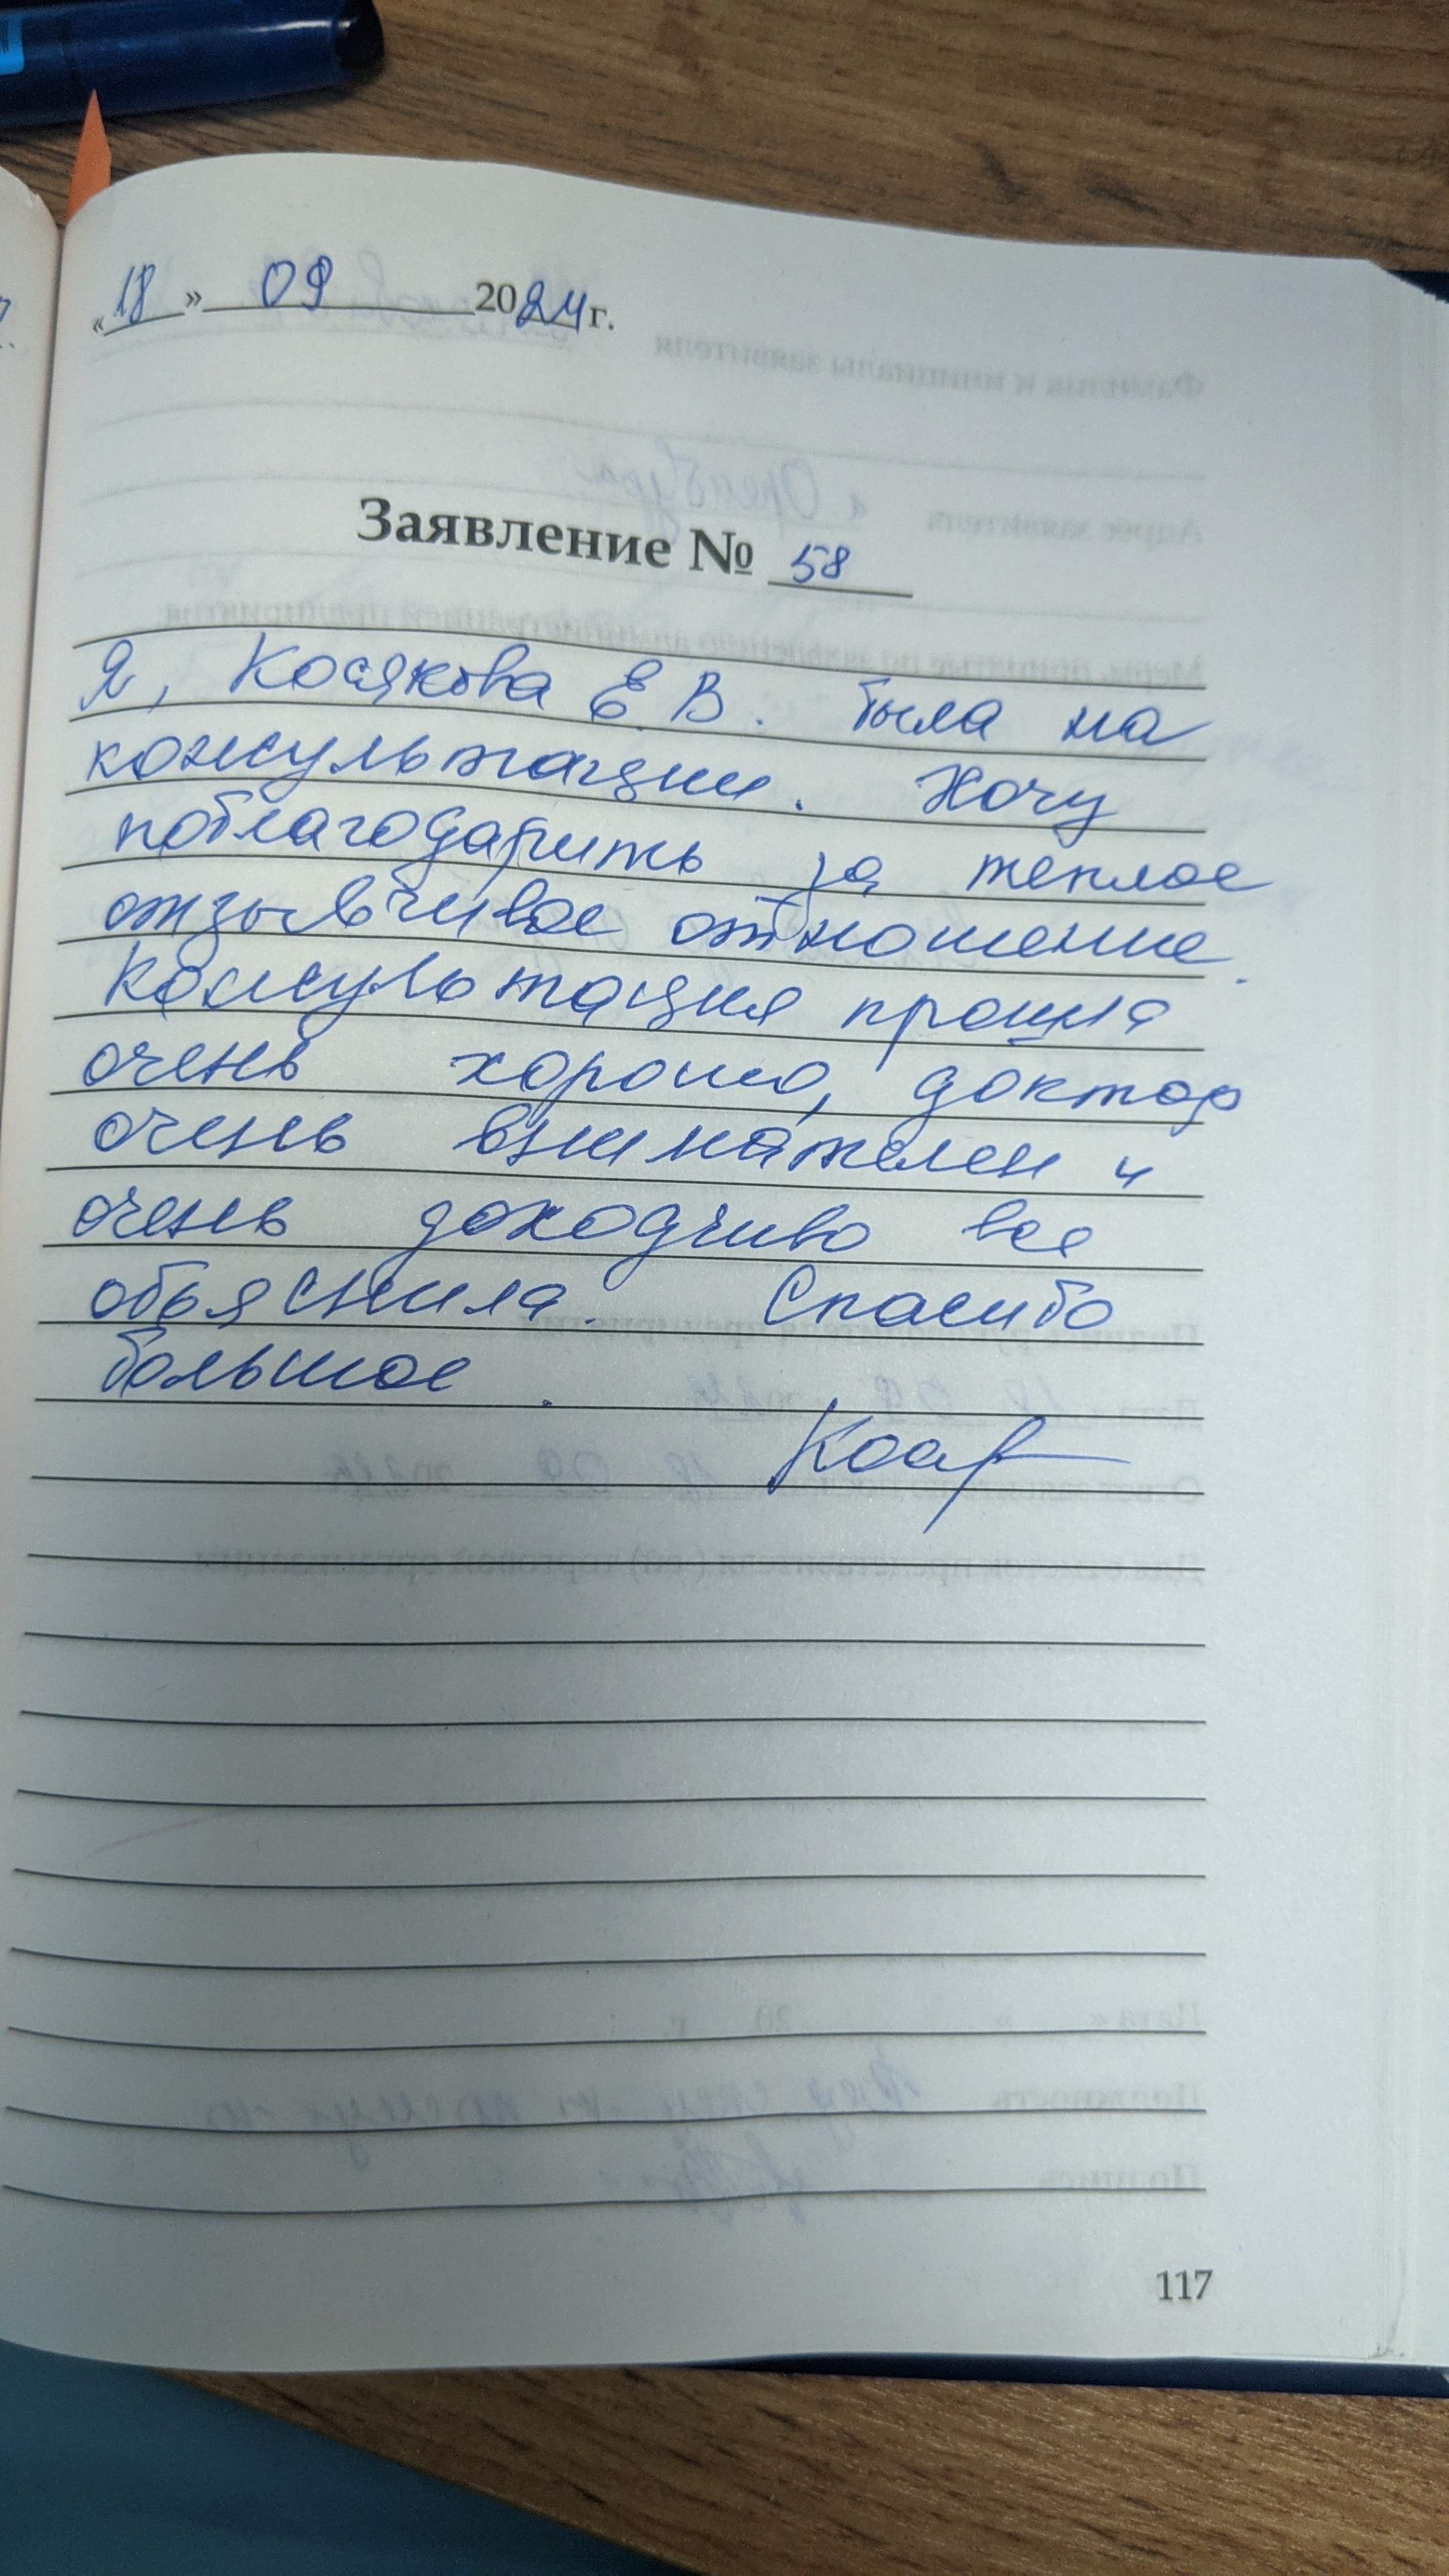 «18» 09 2024 г.
Заявление № 58
Я, Косякова Е.В. была на
консультации. Хочу
поблагодарить за теплое
отзывчивое отношение.
Консультация прошла
очень хорошо, доктор
очень внимателен и
очень доходчиво все
обьяснила. Спасибо
большое.
117